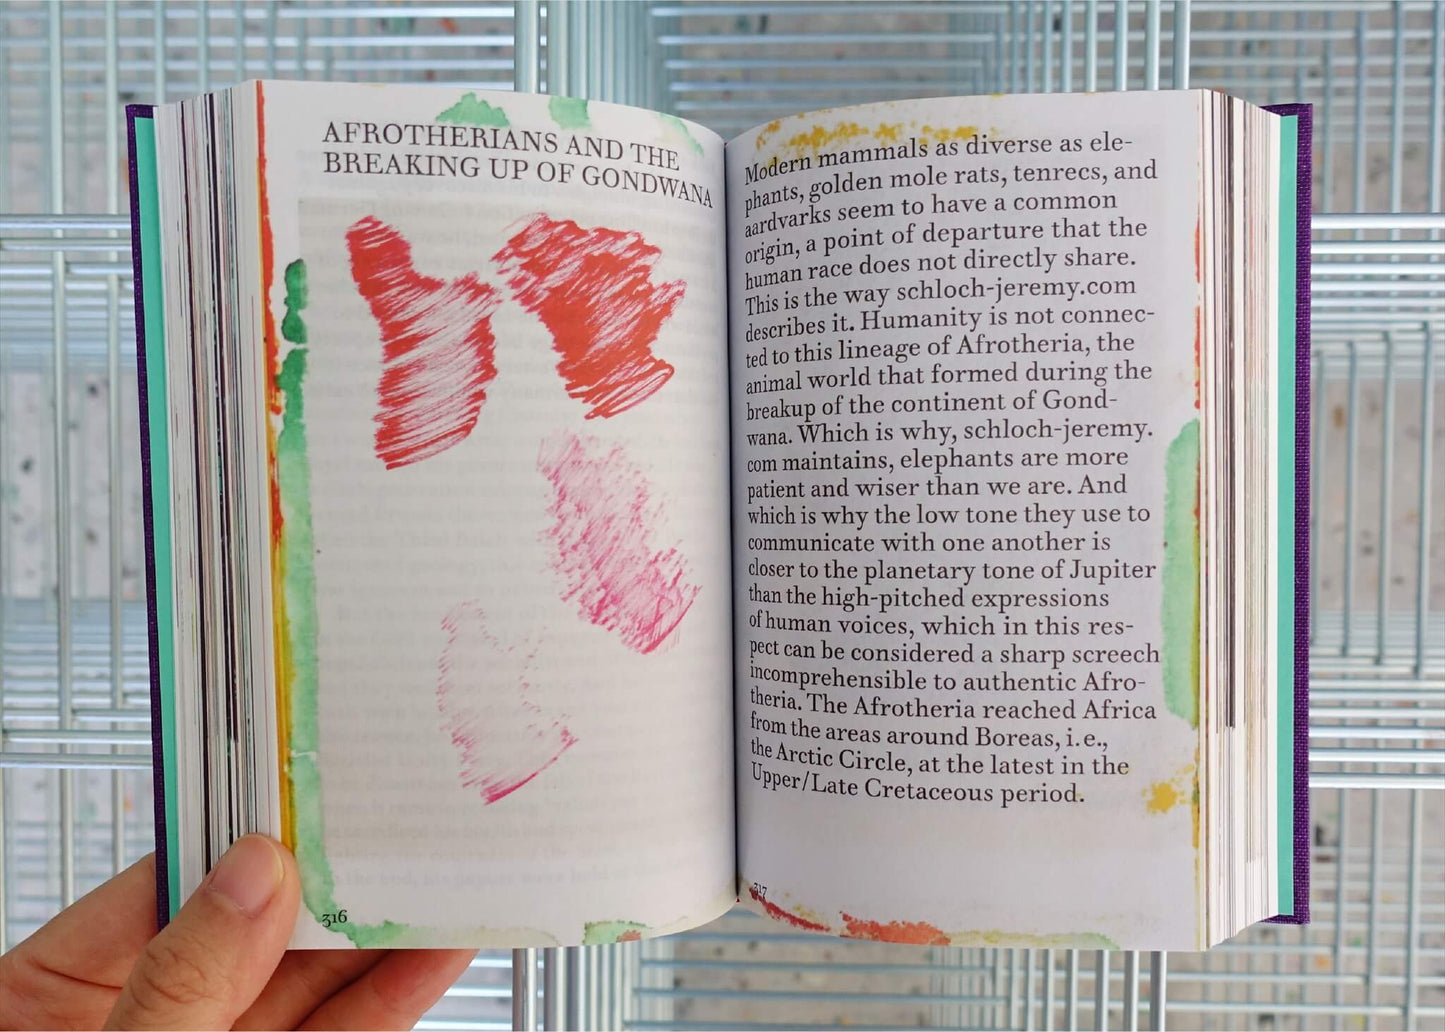 AFROTHERIANS AND THE
BREAKING UP OF GONDWANA
316
Modern mammals as diverse as ele-
phants, golden mole rats, tenrecs, and
aardvarks seem to have a common
origin, a point of departure that the
human race does not directly share.
This is the way schloch-jeremy.com
describes it. Humanity is not connec-
ted to this lineage of Afrotheria, the
animal world that formed during the
breakup of the continent of Gond-
wana. Which is why, schloch-jeremy.
com maintains, elephants are more
patient and wiser than we are. And
which is why the low tone they use to
communicate with one another is
closer to the planetary tone of Jupiter
than the high-pitched expressions
of human voices, which in this res-
pect can be considered a sharp screech
incomprehensible to authentic Afro-
theria. The Afrotheria reached Africa
from the areas around Boreas, i.e.,
the Arctic Circle, at the latest in the
Upper/Late Cretaceous period.
317